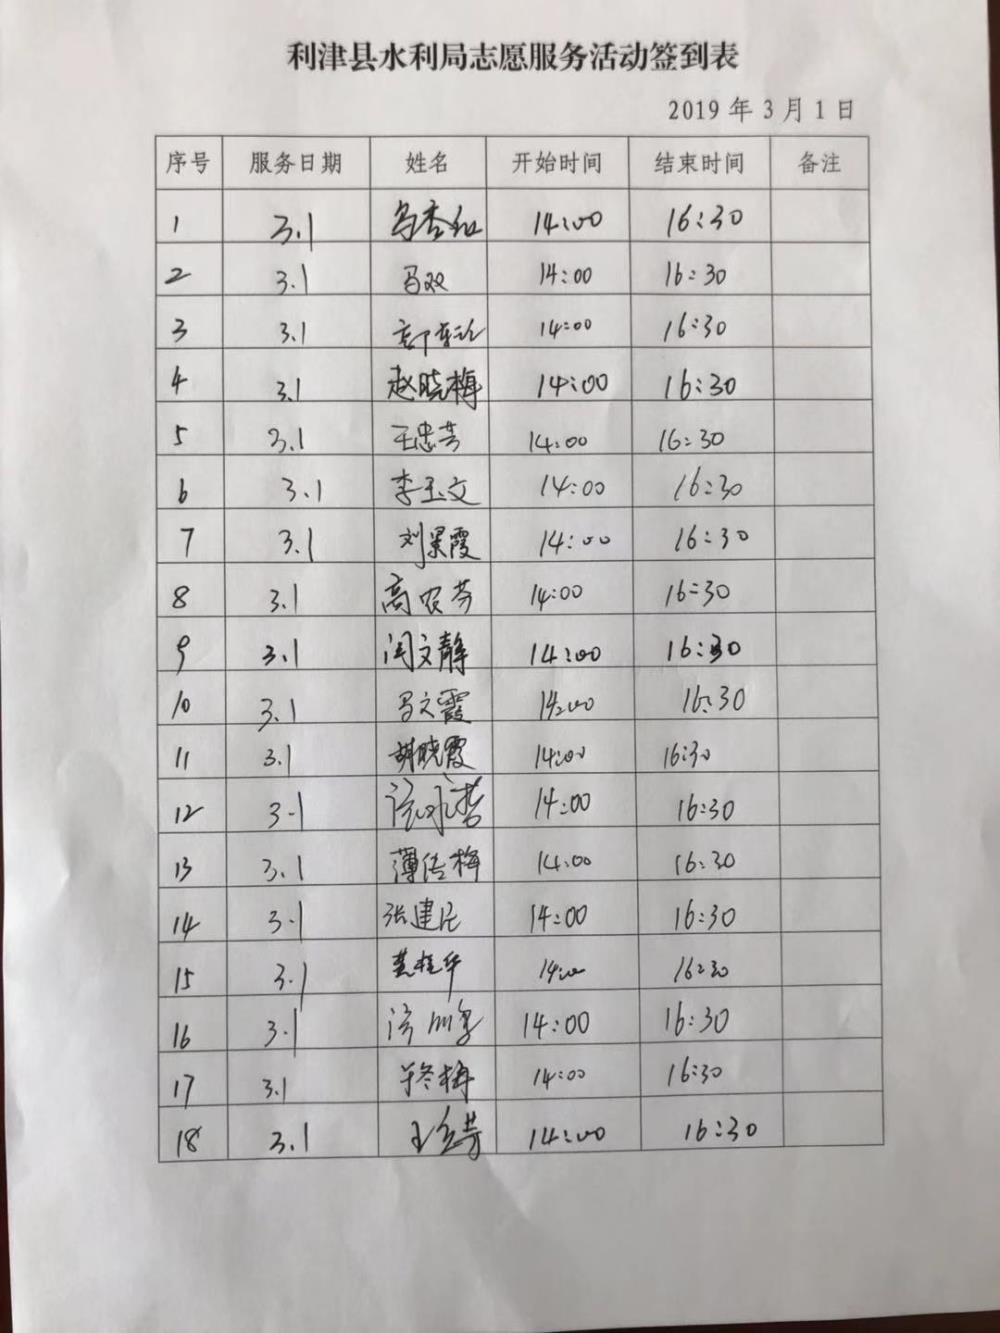 利津县水利局志愿服务活动签到表
2019 年 3 月 1 日
序号 服务日期 姓名 开始时间 结束时间 备注
1 3.1 14:00 16:30
2 3.1 马双 14:00 16:30
3 3.1 14:00 16:30
4 3.1 赵晓梅 14:00 16:30
5 3.1 王忠芳 14:00 16:30
6 3.1 李玉文 14:00 16:30
7 3.1 刘景霞 14:00 16:30
8 3.1 高农芬 14:00 16:30
9 3.1 闫文静 14:00 16:30
10 3.1 马文霞 14:00 16:30
11 3.1 胡晓霞 14:00 16:30
12 3.1 14:00 16:30
13 3.1 薄传梅 14:00 16:30
14 3.1 张建民 14:00 16:30
15 3.1 14:00 16:30
16 3.1 14:00 16:30
17 3.1 14:00 16:30
18 3.1 14:00 16:30